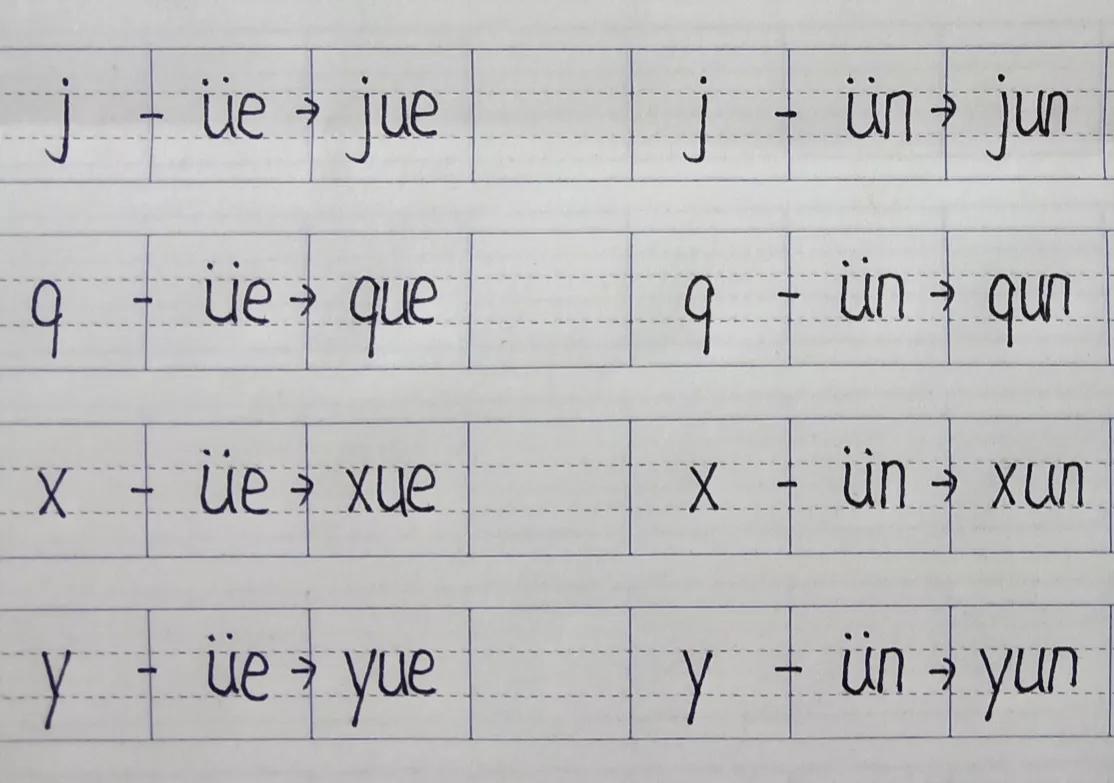 j - üe → jue j - ün → jun
q - üe → que q - ün → qun
x - üe → xue x - ün → xun
y - üe → yue y - ün → yun